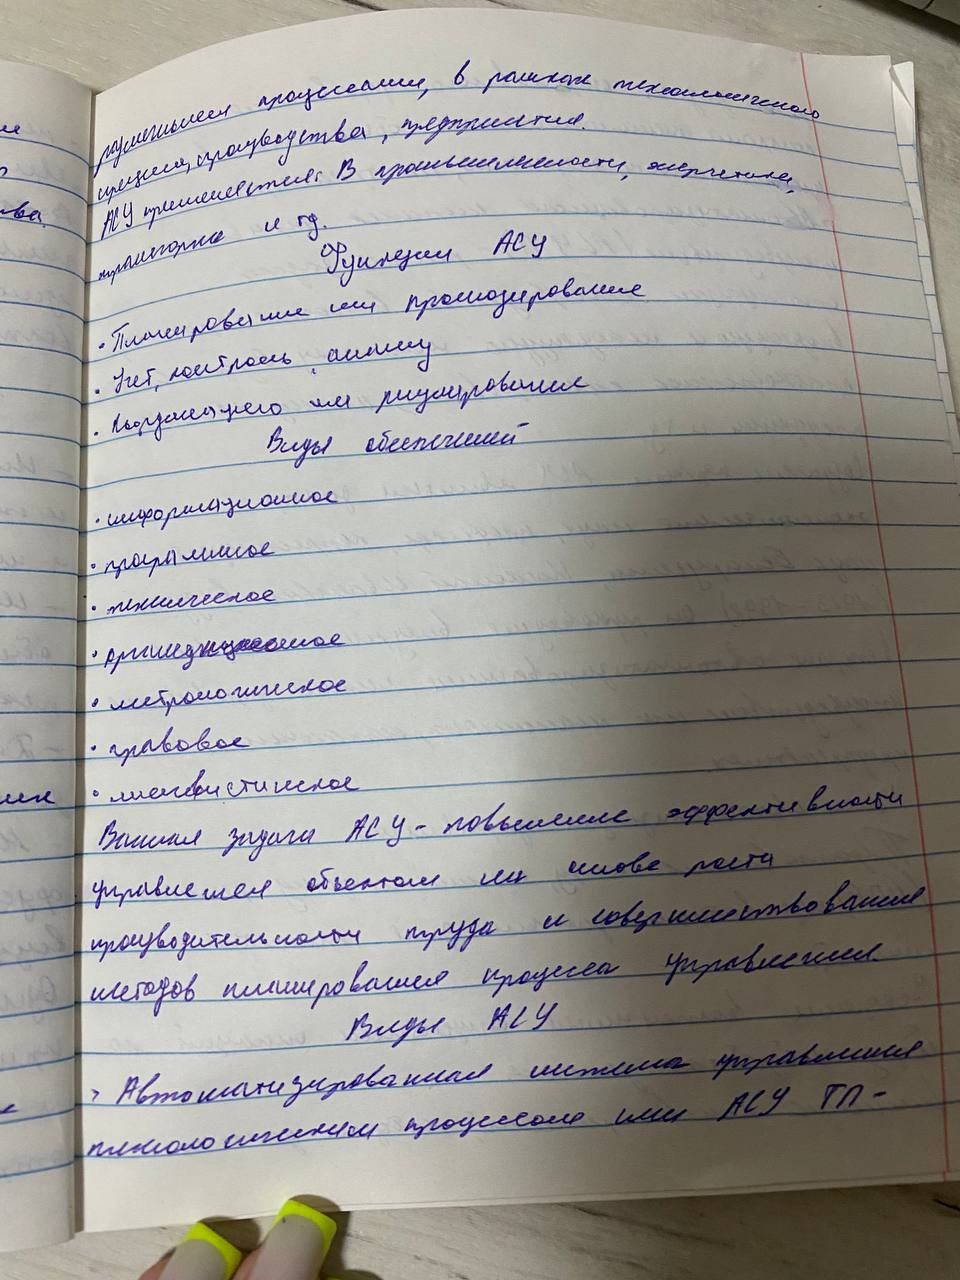 процессами, в рамках технологического
процесса, производства, предприятия.
АСУ применяется: В промышленности, энергетике,
транспорте и тд.
Функции АСУ
• Планирование или прогнозирование
• Учёт, контроль, анализ
• или регулирование
Виды обеспечений
• информационное
• программное
• техническое
• организационное
• метрологическое
• правовое
• лингвистическое
Важная задача АСУ - повышение эффективности
управления объектом на основе роста
производительности труда и совершенствования
методов планирования процесса управления.
Виды АСУ
> Автоматизированная система управления
технологическим процессом или АСУ ТП -
ва